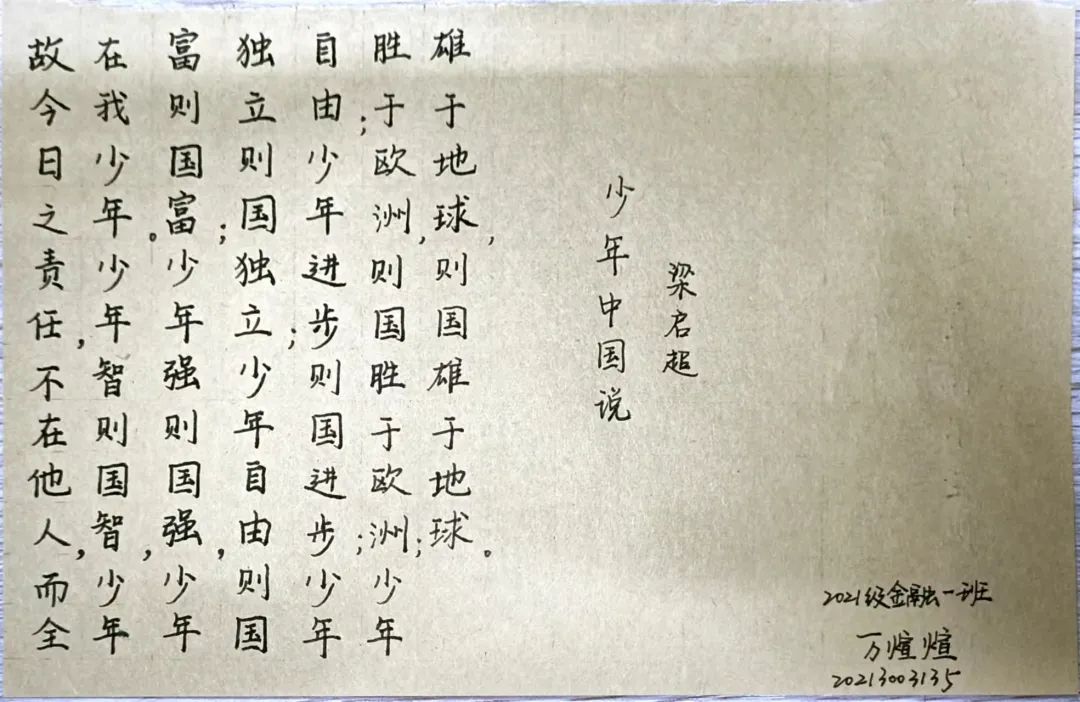 故今日之责任,不在他人,而全
在我少年。少年智则国智,少年
富则国富;少年强则国强,少年
独立则国独立;少年自由则国
自由;少年进步则国进步;少年
胜于欧洲,则国胜于欧洲;少年
雄于地球,则国雄于地球。
少年中国说
梁启超
2021级金融一班
万煊煊
20213003135